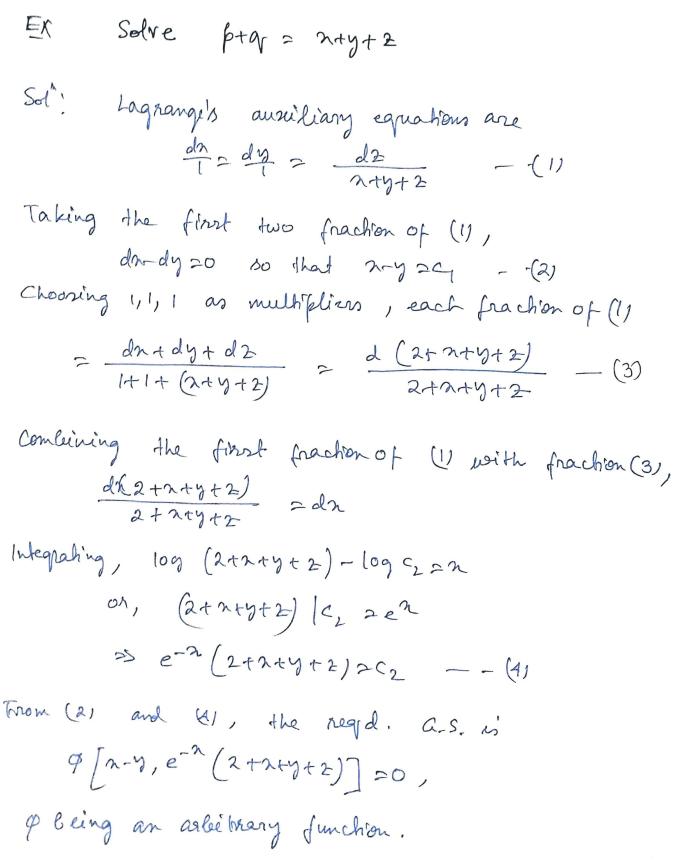 Ex Solve p+q = x+y+z
Solⁿ: Lagrange's auxiliary equations are
dx/1 = dy/1 = dz/(x+y+z) — (1)
Taking the first two fraction of (1),
dx-dy=0 so that x-y=c₁ - (2)
Choosing 1,1,1 as multipliers, each fraction of (1)
= (dx+dy+dz)/(1+1+(x+y+z)) = d(2+x+y+z)/(2+x+y+z) — (3)
Combining the first fraction of (1) with fraction (3),
d(2+x+y+z)/(2+x+y+z) = dx
Integrating, log (2+x+y+z) - log c₂ = x
or, (2+x+y+z)/c₂ = eˣ
⇒ e⁻ˣ (2+x+y+z) = c₂ — - (4)
From (2) and (4), the reqd. G.S. is
φ [x-y, e⁻ˣ (2+x+y+z)] = 0,
φ being an arbitrary function.